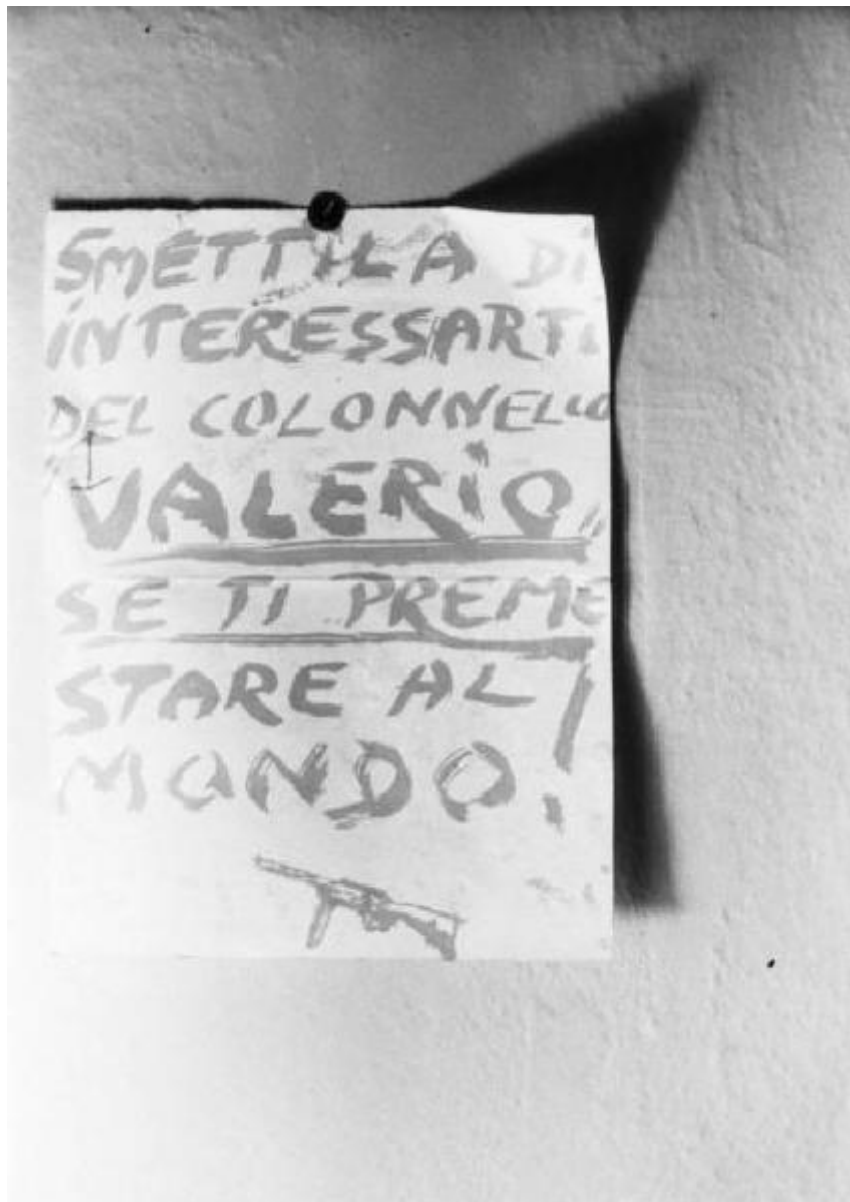 SMETTILA DI
INTERESSARTI
DEL COLONNELLO
"VALERIO"
SE TI PREME
STARE AL
MONDO!